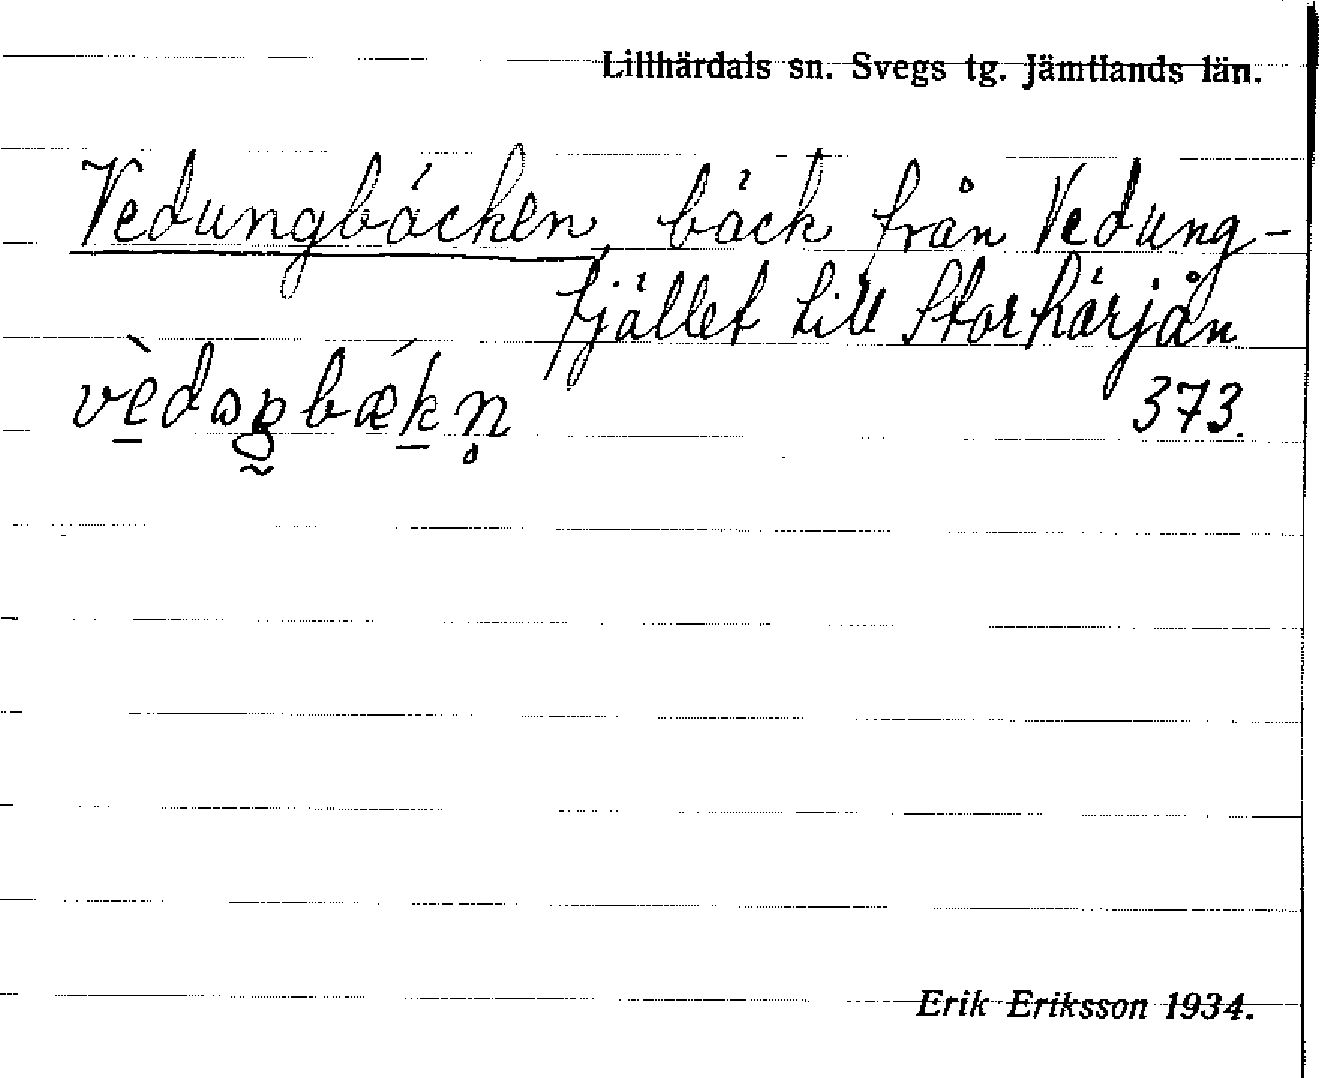 Lillhärdals sn. Svegs tg. Jämtlands län.
Vedungbäcken, bäck från Vedung-
fjället till Storhärjån
373.
Erik Eriksson 1934.